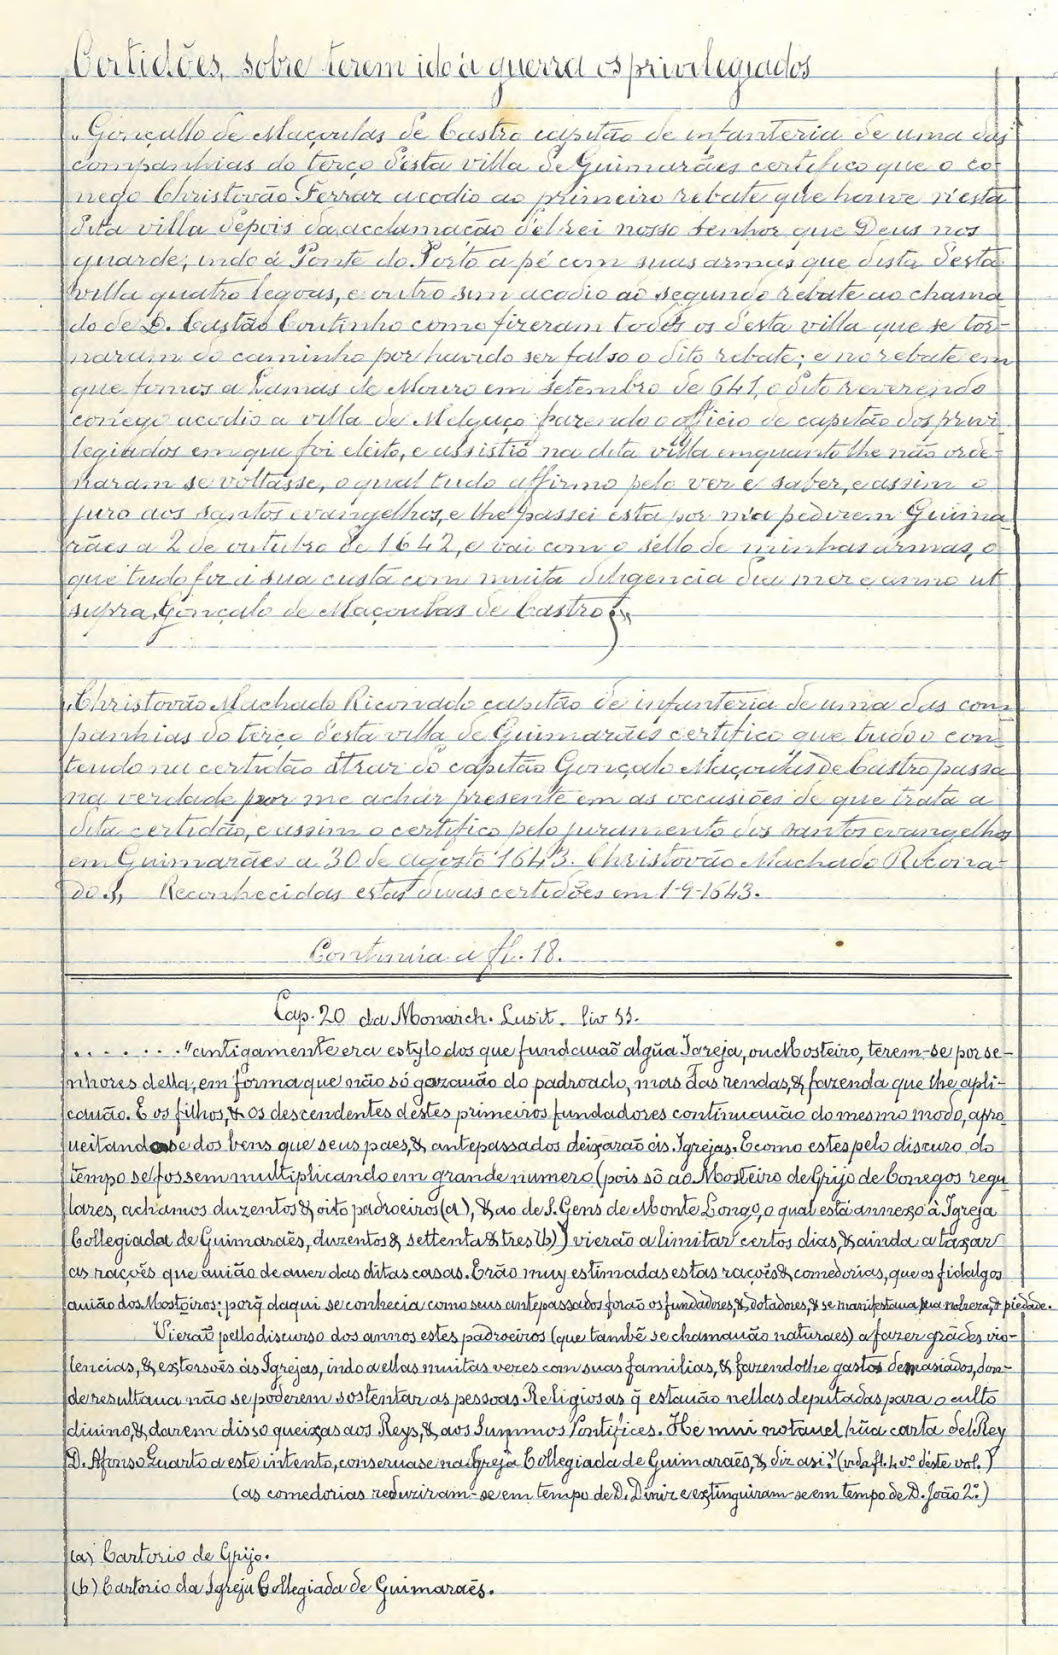 Certidões, sobre terem ido à guerra os privilegiados
"Gonçallo de Maçoulas de Castro capitão de infanteria de uma das
companhias do terço d'esta villa de Guimarães certifico que o co-
nego Christovão Ferraz acodio ao primeiro rebate que houve n'esta
dita villa depois da acclamação d'el rei nosso senhor que Deus nos
guarde, indo á Ponte do Porto a pé com suas armas que dista d'esta
villa quatro legoas, e outro sim acodio ao segundo rebate ao chama-
do de D. Gastão Coutinho como fizeram todos os d'esta villa que se tor-
naram do caminho por havido ser falso o dito rebate; e no rebate em
que fomos a Lamas de Mouro em setembro de 641, o dito reverendo
conego acodio a villa de Melgaço fazendo o officio de capitão dos privi
legiados em que foi eleito, e assistio na dita villa emquanto lhe não orde-
naram se voltasse, o qual tudo affirmo pelo ver e saber, e assim o
juro aos santos evangelhos, e lhe passei esta por m'a pedirem Guima-
rães a 2 de outubro de 1642, e vai com o sello de minhas armas, o
que tudo fez á sua custa com muita diligencia dia mez e anno ut
supra, Gonçalo de Maçoulas de Castro"
"Christovão Machado Riconado capitão de infanteria de uma das com-
panhias do terço d'esta villa de Guimarães certifico que tudo o con-
teudo na certidão atraz do capitão Gonçalo Maçoulas de Castro passa
na verdade por me achar presente em as occasiões de que trata a
dita certidão, e assim o certifico pelo juramento dos santos evangelhos
em Guimarães a 30 de agosto 1643. Christovão Machado Ricona-
do", Reconhecidas estas duas certidões em 1-9-1643.
Continúa a fl. 18.
Cap. 20 da Monarch. Lusit. liv 11.
. . . . . . "antigamente era estylo dos que fundauaõ algũa Igreja, ou Mosteiro, terem-se por se-
nhores della, em forma que não só gozauão do padroado, mas das rendas, & fazenda que lhe apli-
cauão. E os filhos, & os descendentes destes primeiros fundadores continuauão do mesmo modo, apro
ueitandose dos bens que seus paes, & antepassados deixarão às Igrejas. E como estes pelo discurso do
tempo se fossem multiplicando em grande numero (pois só ao Mosteiro de Grijo de Conegos regu
lares, achamos duzentos & oito padroeiros (a), & ao de S. Gens de Monte Longo, o qual está annexo à Igreja
Collegiada de Guimaraẽs, duzentos & settenta & tres (b)) vierão a limitar certos dias, & ainda a taxar
as raçoẽs que auião de auer das ditas casas. Erão muy estimadas estas raçoẽs & comedorias, que os fidalgos
auião dos Mosteiros; porq̃ daqui se conhecia como seus antepassados forão os fundadores, & dotadores, & se manifestaua sua nobreza, & piedade.
Vieraõ pello discurso dos annos estes padroeiros (que tambẽ se chamauão naturaes) a fazer grãdes vio-
lencias, & extorsoẽs às Igrejas, indo a ellas muitas vezes com suas familias, & fazendolhe gastos demasiados, don-
de resultaua não se poderem sostentar as pessoas Religiosas q̃ estauão nellas deputadas para o culto
diuino, & darem disso queixas aos Reys, & aos Summos Pontifices. He mui notauel hũa carta del Rey
D. Afonso Quarto a este intento, conseruase na Igreja Collegiada de Guimaraẽs, & diz asi:" (vid fl. 4 vº d'este vol.)
(as comedorias reduziram-se em tempo de D. Diniz e extinguiram-se em tempo de D. João 2º.)
(a) Cartorio de Grijo.
(b) Cartorio da Igreja Collegiada de Guimaraẽs.